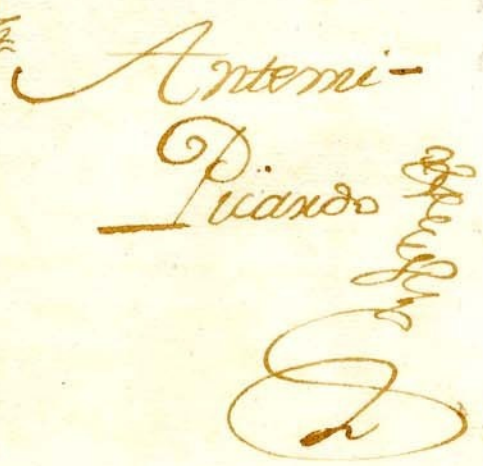 Antemi-
Picardo